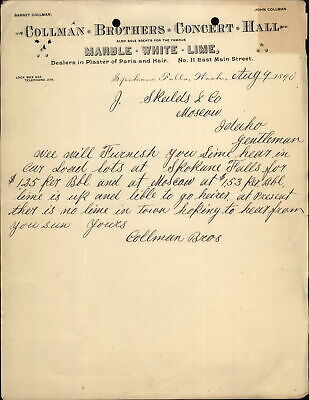 BARNET COLLMAN. JOHN COLLMAN
COLLMAN · BROTHERS · CONCERT · HALL
ALSO SOLE AGENTS FOR THE FAMOUS
MARBLE · WHITE · LIME,
Dealers in Plaster of Paris and Hair. No. 11 East Main Street.
LOCK BOX
TELEPHONE
Spokane Falls, Wash., Aug 9 1890
J. Skulds & Co
Moscow
Idaho
Gentleman
Wee will Furnish you Lime hear in
Car Load lots at Spokane Falls for
$1.25 Per Bbl and at Moscow at $1.53 Per Bbl,
lime is up and lible to go heirer, at Present
ther is no lime in town hoping to hear from
you sun Yours
Collman Bros